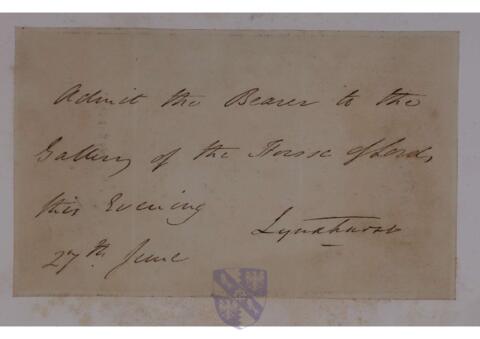 Admit the Bearer to the
Gallery of the House of Lords
this Evening
Lyndhurst
27th June